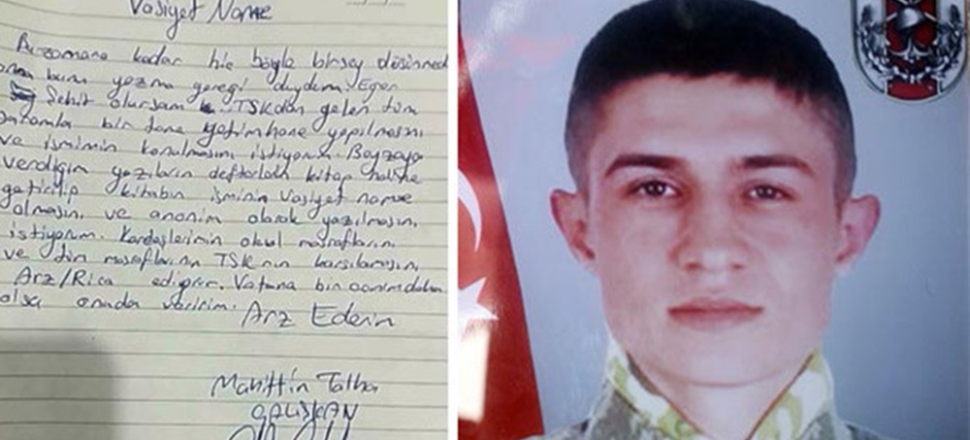 Vasiyet Name
Bu zamana kadar hiç böyle birşey düşünmed
ama bunu yazma gereği duydum. Eğer
Şehit olursam TSK'dan gelen tüm
paramla bir tane yetimhane yapılmasını
ve ismimin konulmasını istiyorum. Beyzaya
verdiğim yazıların defterlerin kitap haline
getirilip kitabın isminin Vasiyet name
olmasın, ve anonim olarak yazılmasın,
istiyorum. Kardeşlerimin okul masrafların
ve tüm masraflarını TSK nın karşılamasın,
Arz/Rica ediyorum. Vatana bin canım daha
olsa onuda veririm.
Arz Ederim
Talha
ÇALIŞKAN